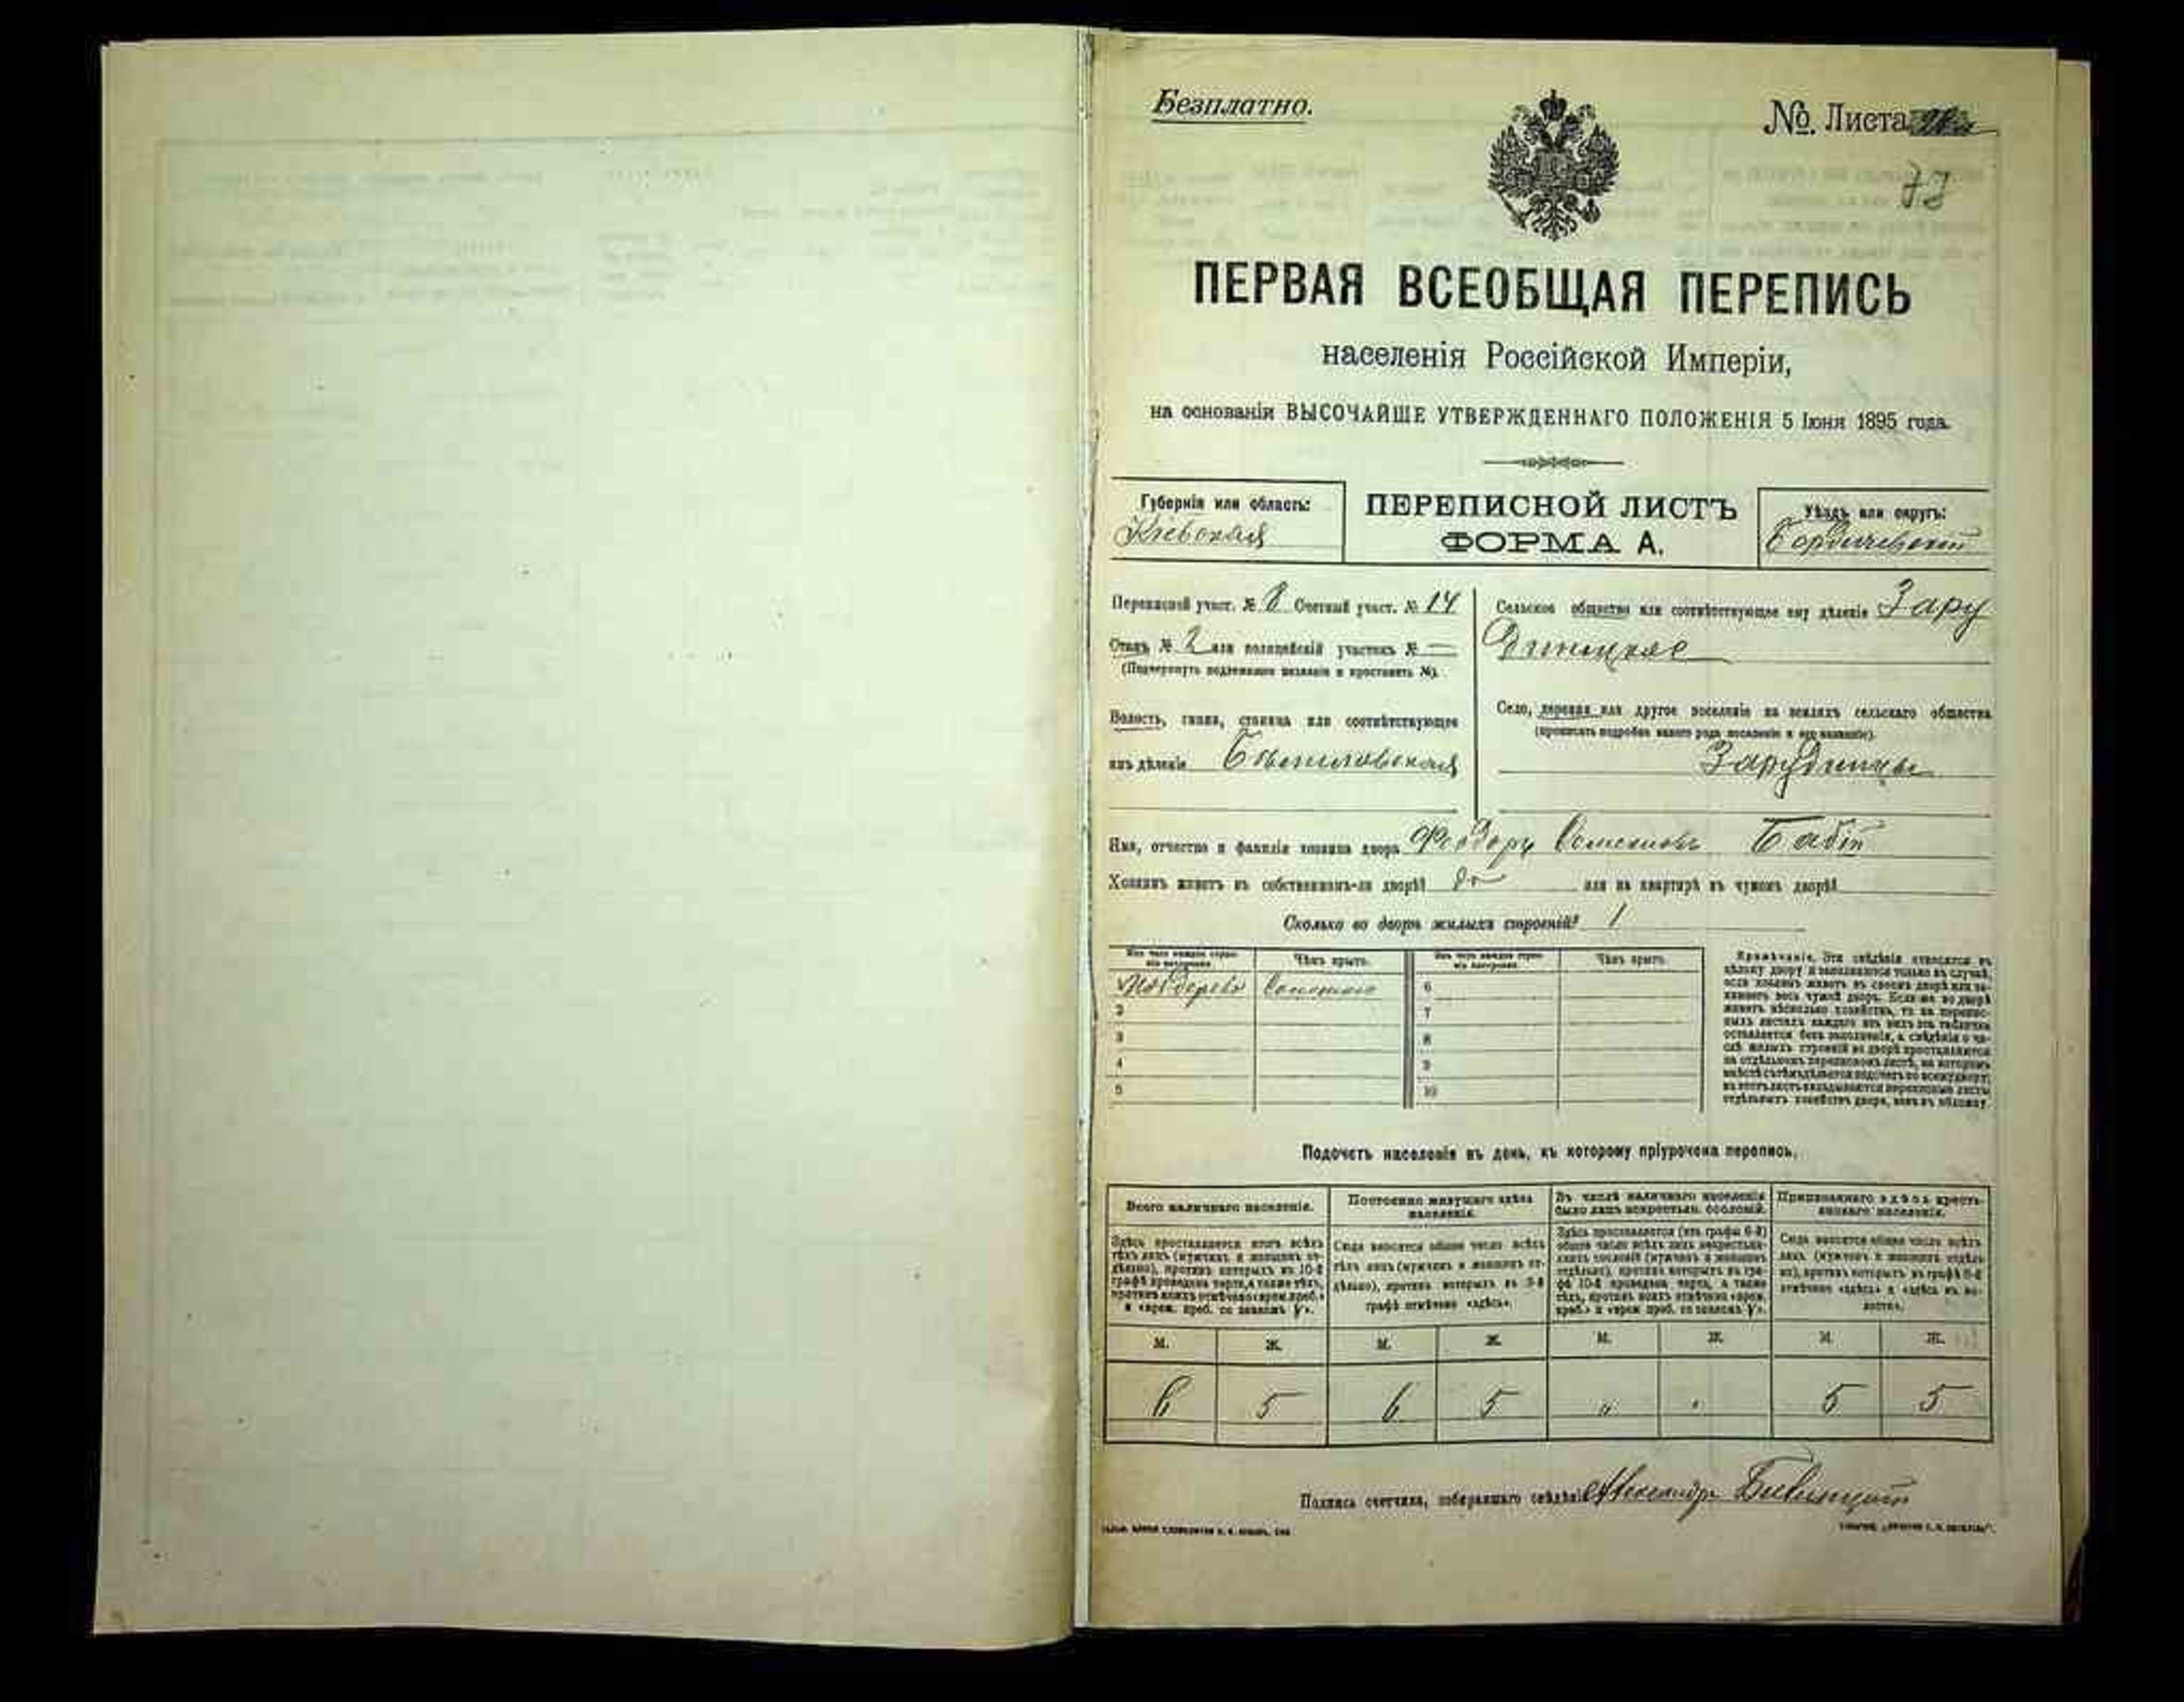 Безплатно.
№ Листа
ПЕРВАЯ ВСЕОБЩАЯ ПЕРЕПИСЬ
населенія Россійской Имперіи,
на основаніи ВЫСОЧАЙШЕ УТВЕРЖДЕННАГО ПОЛОЖЕНІЯ 5 Іюня 1895 года.
Губернія или область:
Кіевская
ПЕРЕПИСНОЙ ЛИСТЪ
ФОРМА А.
Уѣздъ или округъ:
Бердичевскій
Переписной участ. № 8 Счетный участ. № 14
Станъ № 2 или полицейскій участокъ № —
(Подчеркнуть подлежащее названіе и проставить №).
Волость, гмина, станица или соотвѣтствующее
имъ дѣленіе
Сельское общество или соотвѣтствующее ему дѣленіе Зару
динецкое
Село, деревня или другое поселеніе на земляхъ сельскаго общества
(прописать подробно какого рода поселеніе и его названіе).
Зарудинцы
Имя, отчество и фамилія хозяина двора Феодоръ Семеновъ Бабій
Хозяинъ живетъ въ собственномъ-ли дворѣ? да или на квартирѣ въ чужомъ дворѣ?
Сколько во дворѣ жилыхъ строеній? 1
Изъ чего каждое строеніе построено. Чѣмъ крыто. Изъ чего каждое строеніе построено. Чѣмъ крыто.
Изъ дерева Соломою 6
2 7
3 8
4 9
5 10
Примѣчаніе. Эти свѣдѣнія относятся къ
цѣлому двору и заполняются только въ случаѣ,
если хозяинъ живетъ въ своемъ дворѣ или за-
нимаетъ весь чужой дворъ. Если же во дворѣ
живетъ нѣсколько хозяйствъ, то на перепис-
ныхъ листахъ каждаго изъ нихъ эта табличка
оставляется безъ заполненія, а свѣдѣнія о чи-
слѣ жилыхъ строеній во дворѣ проставляются
на отдѣльномъ переписномъ листѣ, на которомъ
вмѣстѣ съ тѣмъ дѣлается подсчетъ по всему двору;
въ этотъ листъ вкладываются переписные листы
отдѣльныхъ хозяйствъ двора, какъ въ обложку.
Подсчетъ населенія въ день, къ которому пріурочена перепись.
Всего наличнаго населенія.
Здѣсь проставляется итогъ всѣхъ
тѣхъ лицъ (мужчинъ и женщинъ от-
дѣльно), противъ которыхъ въ 10-й
графѣ проведена черта, а также тѣхъ,
противъ коихъ отмѣчено «врем. преб.»
и «врем. преб. со знакомъ V».
Постоянно живущаго здѣсь
населенія.
Сюда вносится общее число всѣхъ
тѣхъ лицъ (мужчинъ и женщинъ от-
дѣльно), противъ которыхъ въ 9-й
графѣ отмѣчено «здѣсь».
Въ числѣ наличнаго населенія
было лицъ некрестьян. сословій.
Здѣсь проставляется (изъ графы 6-й)
общее число всѣхъ лицъ некрестьян-
скихъ сословій (мужчинъ и женщинъ
отдѣльно), противъ которыхъ въ гра-
фѣ 10-й проведена черта, а также
тѣхъ, противъ коихъ отмѣчено «врем.
преб.» и «врем. преб. со знакомъ V».
Приписаннаго здѣсь кресть-
янскаго населенія.
Сюда вносится общее число всѣхъ
лицъ (мужчинъ и женщинъ отдѣль-
но), противъ которыхъ въ графѣ 8-й
отмѣчено «здѣсь» и «здѣсь въ во-
лости».
М. Ж. М. Ж. М. Ж. М. Ж.
6 5 6 5 " " 5 5
Подпись счетчика, собиравшаго свѣдѣнія Александръ